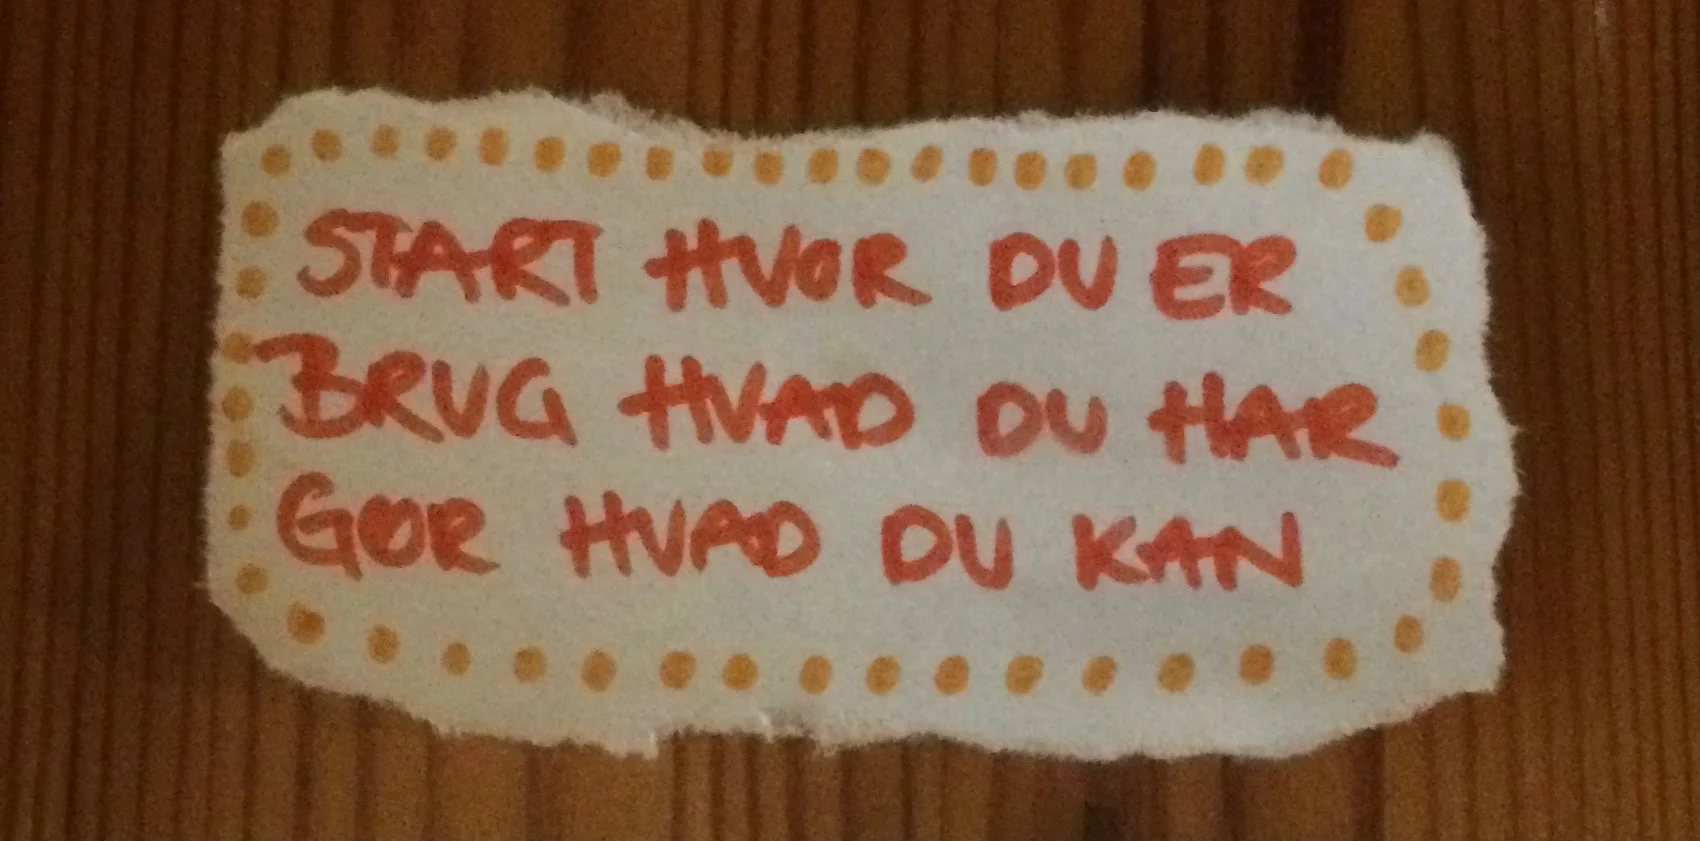 START HVOR DU ER
BRUG HVAD DU HAR
GØR HVAD DU KAN